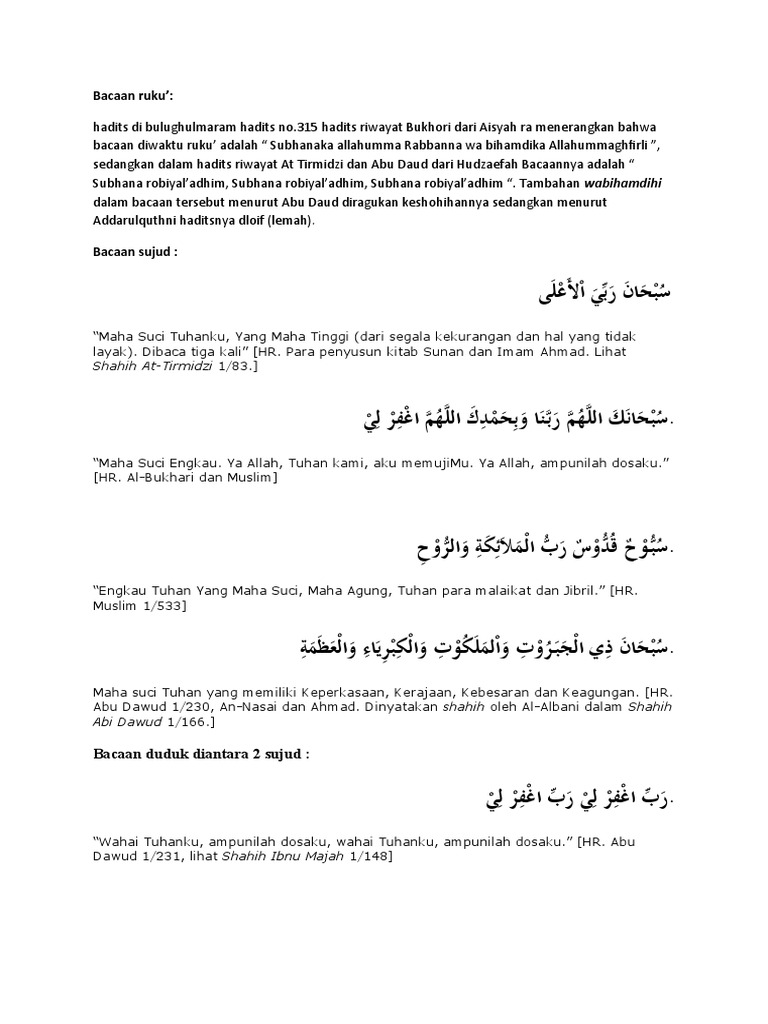 Bacaan ruku’:
hadits di bulughulmaram hadits no.315 hadits riwayat Bukhori dari Aisyah ra menerangkan bahwa
bacaan diwaktu ruku’ adalah “ Subhanaka allahumma Rabbanna wa bihamdika Allahummaghfirli ”,
sedangkan dalam hadits riwayat At Tirmidzi dan Abu Daud dari Hudzaefah Bacaannya adalah “
Subhana robiyal’adhim, Subhana robiyal’adhim, Subhana robiyal’adhim “. Tambahan wabihamdihi
dalam bacaan tersebut menurut Abu Daud diragukan keshohihannya sedangkan menurut
Addarulquthni haditsnya dloif (lemah).
Bacaan sujud :
سُبْحَانَ رَبِّيَ اْلأَعْلَى
“Maha Suci Tuhanku, Yang Maha Tinggi (dari segala kekurangan dan hal yang tidak
layak). Dibaca tiga kali” [HR. Para penyusun kitab Sunan dan Imam Ahmad. Lihat
Shahih At-Tirmidzi 1/83.]
.سُبْحَانَكَ اللَّهُمَّ رَبَّنَا وَبِحَمْدِكَ اللَّهُمَّ اغْفِرْ لِيْ
“Maha Suci Engkau. Ya Allah, Tuhan kami, aku memujiMu. Ya Allah, ampunilah dosaku.”
[HR. Al-Bukhari dan Muslim]
.سُبُّوْحٌ قُدُّوْسٌ رَبُّ الْمَلاَئِكَةِ وَالرُّوْحِ
“Engkau Tuhan Yang Maha Suci, Maha Agung, Tuhan para malaikat dan Jibril.” [HR.
Muslim 1/533]
.سُبْحَانَ ذِي الْجَبَرُوْتِ وَاْلمَلَكُوْتِ وَالْكِبْرِيَاءِ وَالْعَظَمَةِ
Maha suci Tuhan yang memiliki Keperkasaan, Kerajaan, Kebesaran dan Keagungan. [HR.
Abu Dawud 1/230, An-Nasai dan Ahmad. Dinyatakan shahih oleh Al-Albani dalam Shahih
Abi Dawud 1/166.]
Bacaan duduk diantara 2 sujud :
.رَبِّ اغْفِرْ لِيْ رَبِّ اغْفِرْ لِيْ
“Wahai Tuhanku, ampunilah dosaku, wahai Tuhanku, ampunilah dosaku.” [HR. Abu
Dawud 1/231, lihat Shahih Ibnu Majah 1/148]